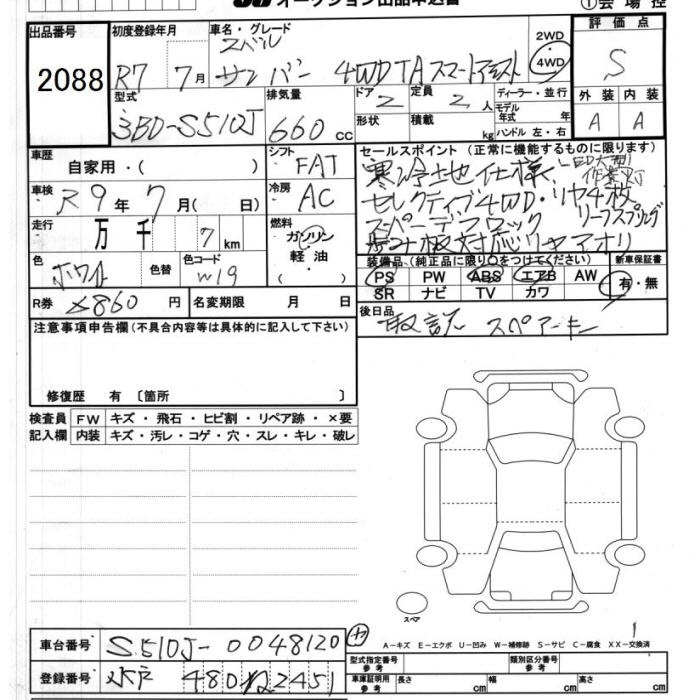 オークション出品申込書
①会場控
出品番号
2088
初度登録年月
R7 7月
車名・グレード
スバル
サンバー 4WD TA スマートアシスト
2WD
・
4WD
評価点
S
外装 内装
A A
型式
3BD-S510J
排気量
660 cc
ドア
2
定員
2人
ディーラー・並行
モデル
年式 年
形状
積載 kg
ハンドル 左・右
車歴
自家用・( )
シフト
FAT
車検
R9年7月( 日)
冷房
AC
走行
万 千 7 km
燃料
ガソリン
軽油
・
色
ホワイト
色替
色コード
W19
R券
860円
名変期限 月 日
セールスポイント (正常に機能するものに限ります)
寒冷地仕様、LED大型
作業灯
セレクティブ4WD・リヤ4枚
リーフスプリング
スーパーデフロック
歩み板対応リヤアオリ
装備品 (純正品に限り○をつけてください)
PS PW ABS エアB AW
SR ナビ TV カワ
新車保証書
有・無
後日品
取説 スペアーキー
注意事項申告欄 (不具合内容等は具体的に記入して下さい)
修復歴 有 〔箇所 〕
検査員 FW キズ・飛石・ヒビ割・リペア跡・×要
記入欄 内装 キズ・汚レ・コゲ・穴・スレ・キレ・破レ
スペア
A－キズ E－エクボ U－凹み W－補修跡 S－サビ C－腐食 XX－交換済
1
車台番号
S510J-0048120
登録番号
水戸 480 2451
型式指定番号
参考
類別区分番号
参考
車庫証明用
参考
長さ cm 幅 cm 高さ cm